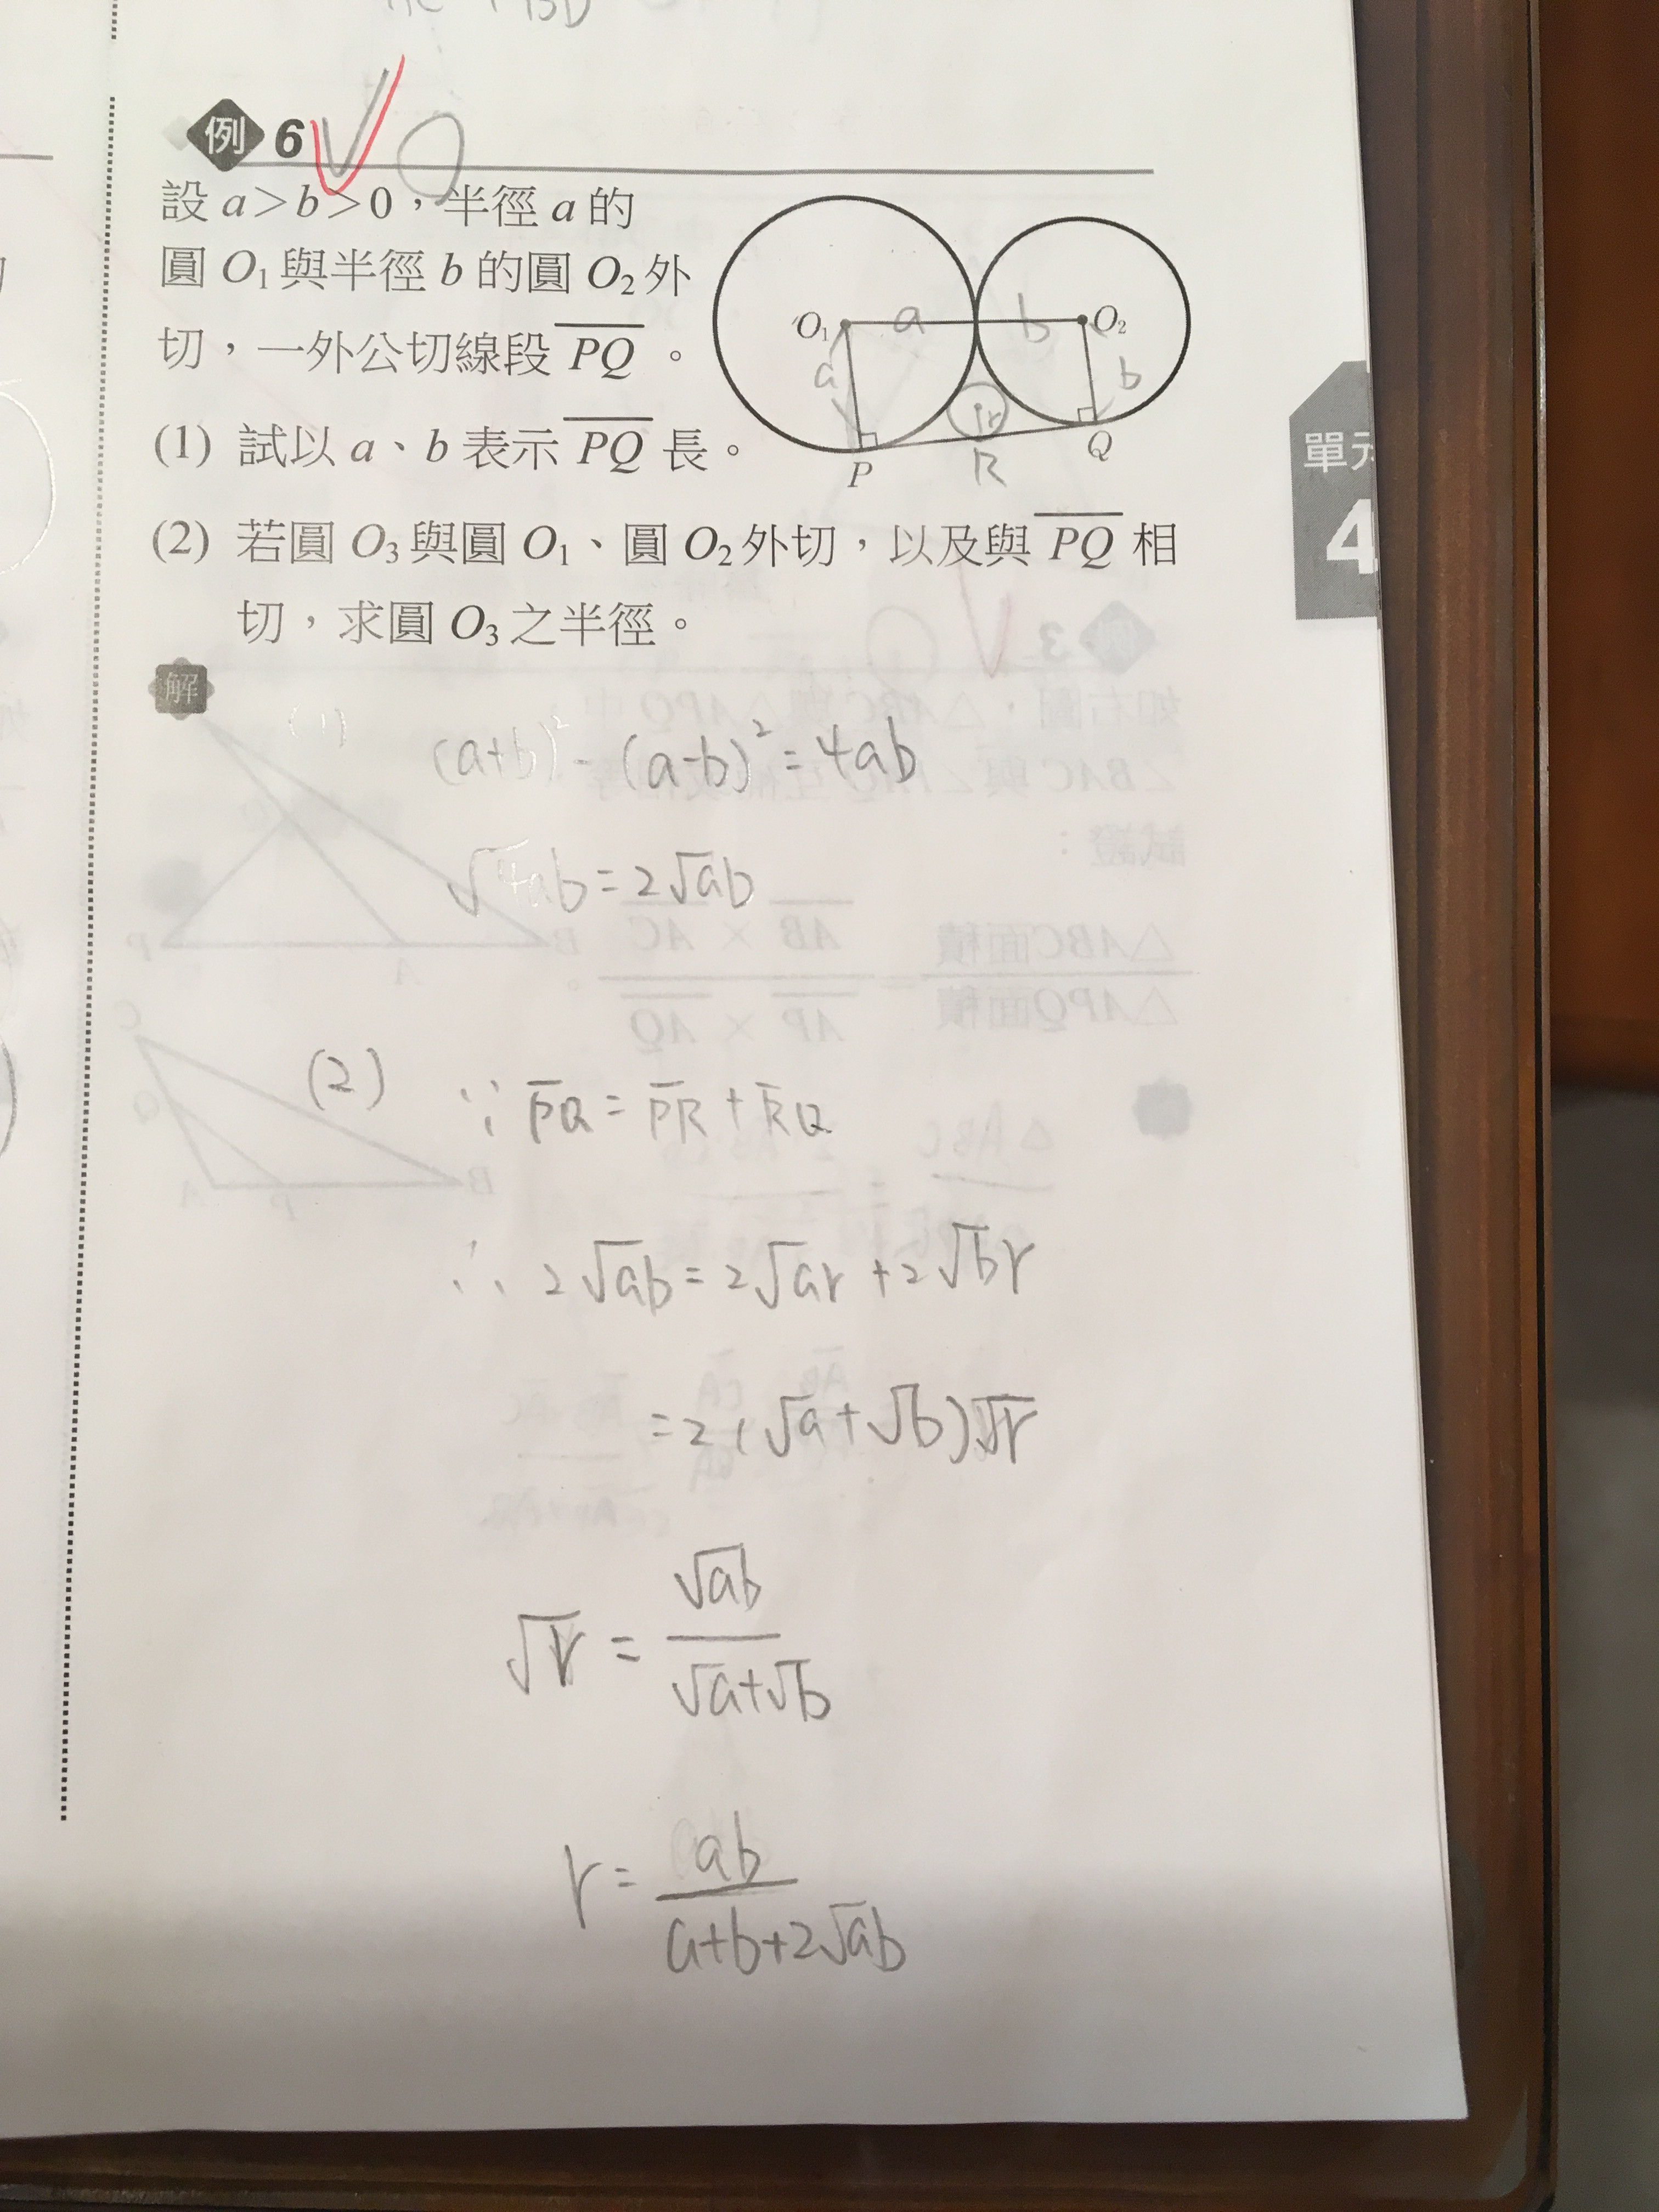 例 6
設 a>b>0，半徑 a 的
圓 O₁ 與半徑 b 的圓 O₂ 外
切，一外公切線段 PQ 。
(1) 試以 a、b 表示 PQ 長。
O₁ a b O₂
a b
r
P R Q
(2) 若圓 O₃ 與圓 O₁、圓 O₂ 外切，以及與 PQ 相
切，求圓 O₃ 之半徑。
單元
4
解
(1) (a+b)² - (a-b)² = 4ab
√4ab = 2√ab
(2) ∵ PQ = PR + RQ
∴ 2√ab = 2√ar + 2√br
= 2(√a+√b)√r
√r = √ab / √a+√b
r = ab / a+b+2√ab